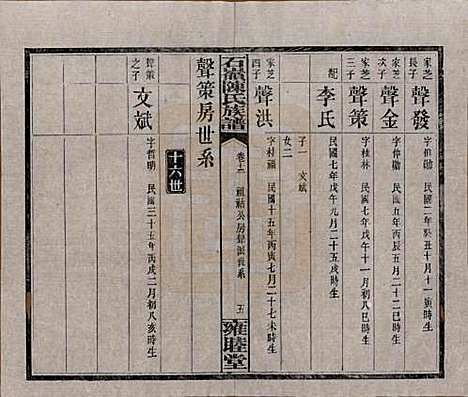 家芝長子 聲發 字伸勛 民國二年癸丑十月十一寅時生
家芝次子 聲金 字仲勝 民國五年丙辰五月二十二巳時生
家芝三子 聲策 字桂林 民國七年戊午十一月初八巳時生
配 李氏 民國七年戊午元月二十五亥時生
子一 文斌
女二
家芝四子 聲洪 字桂福 民國十五年丙寅七月二十七未時生
石嶺陳氏族譜
卷十二 祖結公房 世系 五
雍睦堂
聲策房世系
十六世
聲策之子 文斌 字哲明 民國三十五年丙戌二月初八亥時生